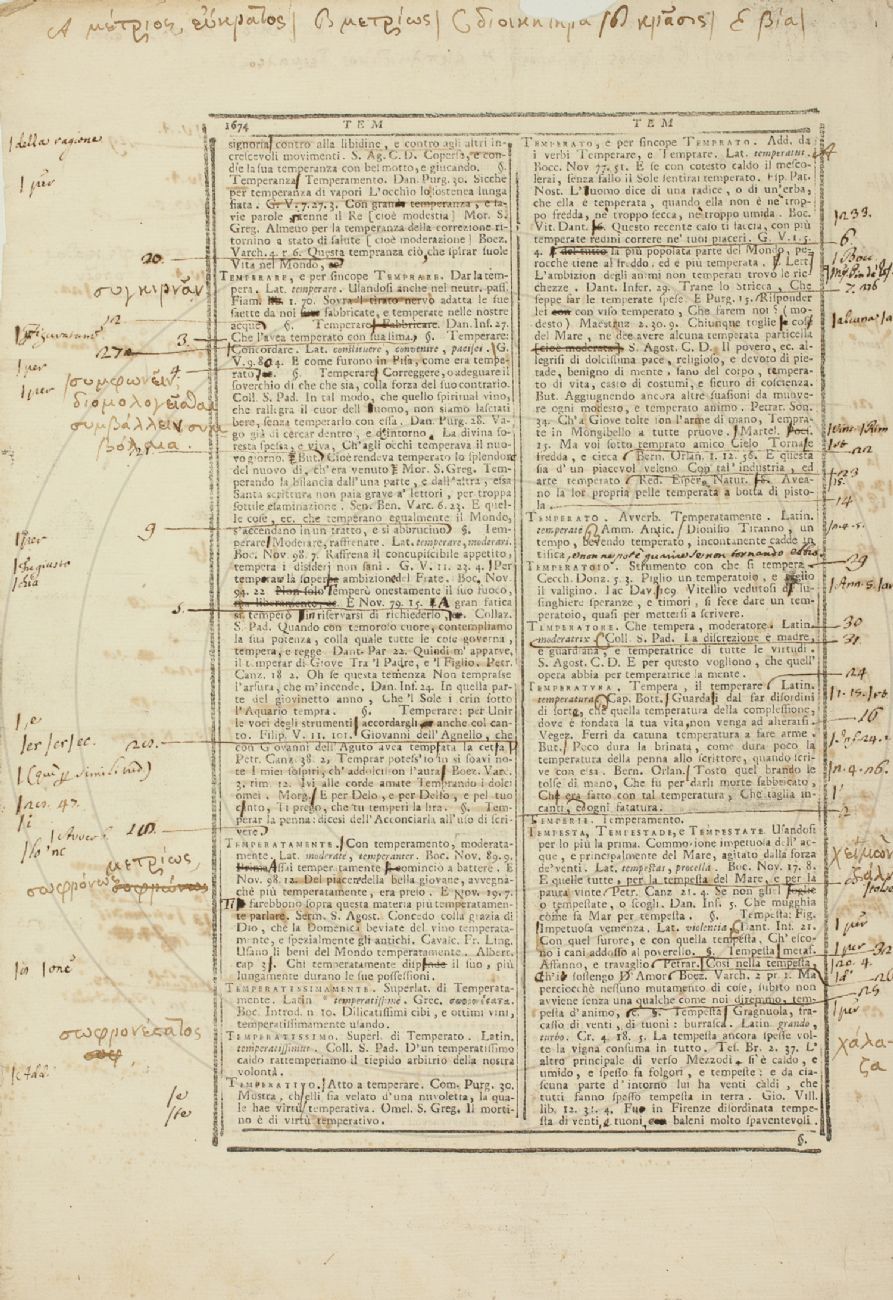 A μέτριος, εὔκρατος| B μετρίως| C διοικητηρα |D κρᾶσις| E βία|
1674 TEM TEM
signoria contro alla libidine, e contro agli altri in-
crescevoli movimenti. S. Ag. C. D. Copersa, e con-
die la sua temperanza con bel motto, e giucando. §.
Temperanza Temperamento. Dan. Purg. 30. Sicchè
per temperanza di vapori L'occhio lo sostenea lunga
fiata. G. V. 7. 27. 3. Con grande temperanza, e sa-
vie parole tenne il Re [cioè modestia] Mor. S.
Greg. Almeno per la temperanza della correzione ri-
tornino a stato di salute [cioè moderazione] Boez.
Varch. 4. r. 6. Questa tempranza ciò, che spirar suole
Vita nel Mondo,
TEMPERARE, e per sincope TEMPRARE. Dar la tem-
pera. Lat. temperare. Usandosi anche nel neutr. pass.
Fiam. 1. 70. Sovra il tirato nervo adatta le sue
saette da noi fabbricate, e temperate nelle nostre
acque §. Temperare Fabbricare. Dan. Inf. 27.
Che l'avea temperato con sua lima. §. Temperare:
Concordare. Lat. constituere, convenire, pacisci. G.
V. 9. 80 4. E come furono in Pisa, come era tempe-
rato §. Temperare Correggere, o adeguare il
soverchio di che che sia, colla forza del suo contrario.
Coll. S. Pad. In tal modo, che quello spiritual vino,
che rallegra il cuor dell uomo, non siamo lasciati
bere, senza temperarlo con essa. Dan. Purg. 28. Va-
go già di cercar dentro, e dintorno, La divina fo-
resta spessa, e viva, Ch'agli occhi temperava il nuo-
vo giorno. But. Cioè rendeva temperato lo splendore
del nuovo dì, ch'era venuto Mor. S. Greg. Tem-
perando la bilancia dall'una parte, e dall'altra, essa
Santa scrittura non paia grave a' lettori, per troppa
sottile esaminazione. Sen. Ben. Varc. 6. 23. E quel-
le cose, ec. che temperano egualmente il Mondo,
s'accendano in un tratto, e si abbrucino §. Tem-
perare Moderare, raffrenare. Lat. temperare, moderari.
Boc. Nov. 98. 7. Raffrena il concupiscibile appetito,
tempera i disiderj non sani. G. V. 11. 23. 4. Per
temperare la superbia ambizione del Frate. Boc. Nov.
94. 22 Non solo Temperò onestamente il suo fuoco,
E Nov. 79. 15. A gran fatica
si temperò in riservarsi di richiederlo Collaz.
S. Pad. Quando con temoroso cuore, contempliamo
la sua potenza, colla quale tutte le cose governa,
tempera, e regge Dant. Par 22. Quindi m'apparve,
il temperar di Giove Tra 'l Padre, e 'l Figlio. Petr.
Canz. 18 2. Oh se questa temenza Non temprasse
l'arsura, che m'incende. Dan. Inf. 24. In quella par-
te del giovinetto anno, Che 'l Sole i crin sotto
l'Aquario tempra. §. Temperare: per Unir
le voci degli strumenti accordargli anche col can-
to. Filip. V. 11. 101. Giovanni dell'Agnello, che
con Giovanni dell'Aguto avea temprata la cetra
Petr. Canz. 38. 2. Temprar potess'io in sì soavi no-
te I miei sospiri, ch'addolcisson l'aura Boez. Varc.
3. rim. 12. Ivi alle corde amate Temprando i dolci
omei. Morg. E per Delo, e per Delfo, e pel tuo
Cinto, Ti prego, che tu temperi la lira. §. Tem-
perar la penna: dicesi dell'Acconciarla all'uso di scri-
vere
TEMPERATAMENTE. Con temperamento, moderata-
mente. Lat. moderatè, temperanter. Boc. Nov. 89. 9.
Assai temperatamente cominciò a battere. E
Nov. 98. 12. Del piacer della bella giovane, avvegna-
chè più temperatamente, era preso. E Nov. 19. 7.
Ti farebbono sopra questa materia più temperatamen-
te parlare. Serm. S. Agost. Concedo colla grazia di
Dio, che la Domenica beviate del vino temperata-
mente, e spezialmente gli antichi. Cavalc. Fr. Ling.
Usano li beni del Mondo temperatamente. Albert.
cap 3. Chi temperatamente dispende il suo, più
lungamente durano le sue possessioni.
TEMPERATISSIMAMENTE. Superlat. di Temperata-
mente. Latin temperatissimè. Grec. σωφρονέςατα.
Boc. Introd. n 10. Dilicatissimi cibi, e ottimi vini,
temperatissimamente usando.
TEMPERATISSIMO. Superl. di Temperato. Latin.
temperatissimus. Coll. S. Pad. D'un temperatissimo
caldo rattemperiamo il tiepido arbitrio della nostra
volontà.
TEMPERATIVO. Atto a temperare. Com. Purg. 30.
Mostra, ch'elli sia velato d'una nuvoletta, la qua-
le hae virtù temperativa. Omel. S. Greg. Il morti-
no è di virtù temperativo.
TEMPERATO, e per sincope TEMPRATO. Add. da
i verbi Temperare, e Temprare. Lat. temperatus.
Bocc. Nov 77. 51. E se con cotesto caldo il mesco-
lerai, senza fallo il Sole sentirai temperato. Fip. Pat.
Nost. L'uomo dice di una radice, o di un'erba,
che ella è temperata, quando ella non è nè trop-
po fredda, nè troppo secca, nè troppo umida. Boc.
Vit. Dant. Questo recente caso ti faccia, con più
temperate redini correre ne' tuoi piaceri. G. V. 1. 5.
4. del tutto la più popolata parte del Mondo, pe-
rocchè tiene al freddo, ed è più temperata. Lett.
L'ambizion degli animi non temperati trovò le ric-
chezze. Dant. Infer. 29. Trane lo Stricca, Che
seppe far le temperate spese. E Purg. 15. Risponder
lei con viso temperato, Che farem noi? (mo-
desto) Maestruz 2. 30. 9. Chiunque toglie cosa
del Mare, ne dee avere alcuna temperata particella
[cioè moderata]. S. Agost. C. D. Il povero, ec. al-
legrasi di dolcissima pace, religioso, e devoto di pie-
tade, benigno di mente, sano del corpo, tempera-
to di vita, casto di costumi, e sicuro di coscienza.
But. Aggiugnendo ancora altre suasioni da muove-
re ogni modesto, e temperato animo. Petrar. Son.
33. Ch'a Giove tolte son l'arme di mano, Tempra-
te in Mongibello a tutte pruove. Martel. Poet.
15. Ma voi sotto temprato amico Cielo Tornasse
fredda, e cieca Bern. Orlan. 1. 12. 56. E questa
sia d'un piacevol veleno Con tal'industria, ed
arte temperato Red. Esper. Natur. 6. Avea-
no la lor propria pelle temperata a botta di pisto-
la.
TEMPERATO. Avverb. Temperatamente. Latin.
temperatè Amm. Antic. Dionisio Tiranno, un
tempo, bevendo temperato, incontanente cadde in
tisica,
TEMPERATOIO. Strumento con che si tempera
Cecch. Dona. 5. 3. Piglio un temperatoio, e taglio
il valigino. Tac Dav. 3. 69 Vitellio vedutosi di lu-
singhiere speranze, e timori, si fece dare un tem-
peratoio, quasi per mettersi a scrivere.
TEMPERATORE. Che tempera, moderatore. Latin.
moderatrix Coll. S. Pad. La discrezione è madre,
e guardiana, e temperatrice di tutte le virtudi.
S. Agost. C. D. E per questo vogliono, che quell'
opera abbia per temperatrice la mente.
TEMPERATURA. Tempera, il temperare Latin.
temperatura Cap. Bott. Guardasi dal far disordini
di sorte, che quella temperatura della complessione,
dove è fondata la tua vita, non venga ad alterarsi.
Vegez. Ferri da catuna temperatura a fare arme.
But. Poco dura la brinata, come dura poco la
temperatura della penna allo scrittore, quando scri-
ve con essa. Bern. Orlan. Tosto quel brando le
tolse di mano, Che fu per darli morte fabbricato,
Che era fatto con tal temperatura, Che taglia in-
canti, ed ogni fatatura.
TEMPERIE. Temperamento.
TEMPESTA, TEMPESTADE, e TEMPESTATE. Usandosi
per lo più la prima. Commozione impetuosa dell' ac-
que, e principalmente del Mare, agitato dalla forza
de' venti. Lat. tempestas, procella. Boc. Nov. 17. 8.
E quelle tutte, per la tempesta del Mare, e per la
paura vinte Petr. Canz 21. 4. Se non gli
o tempestate, o scogli. Dan. Inf. 5. Che mugghia
come fa Mar per tempesta. §. Tempesta: Fig.
Impetuosa veemenza. Lat. violentia Dant. Inf. 21.
Con quel furore, e con quella tempesta, Ch'esco-
no i cani addosso al poverello. §. Tempesta metaf.
Affanno, e travaglio Petrar. Così nella tempesta,
Ch'i sostengo D'Amor Boez. Varch. 2 pr 1. Ma
perciocchè nessuno mutamento di cose, subito non
avviene senza una qualche come noi diremmo, tem-
pesta d'animo, §. Tempesta Gragnuola, fra-
casso di venti, di tuoni: burrasca. Latin. grando,
turbo. Cr. 4. 18. 5. La tempesta ancora spesse vol-
te la vigna consuma in tutto. Tes. Br. 2. 37. L'
altro principale di verso Mezzodì, si è caldo, e
umido, e spesso fa folgori, e tempeste: e da cia-
scuna parte d'intorno lui ha venti caldi, che
tutti fanno spesso tempesta in terra. Gio. Vill.
lib. 12. 31. 4. Fue in Firenze disordinata tempe-
sta di venti, e tuoni, baleni molto spaventevoli.
§.
della ragione
per
20.
συγκιρνᾶν
3.
27
4
per
συμφωνεῖν
διομολογεῖσθαι
συμβάλλειν συμ
βόλαια.
per
9
che giusto
μετρίως,
σωφρόνως
σωφρονέςατος
Add.
A
233.
6
Bocc
alcuna
22
23
14
29
30
31
24
16
2
χειμών
per
32
26
25
per
χάλα-
ζα